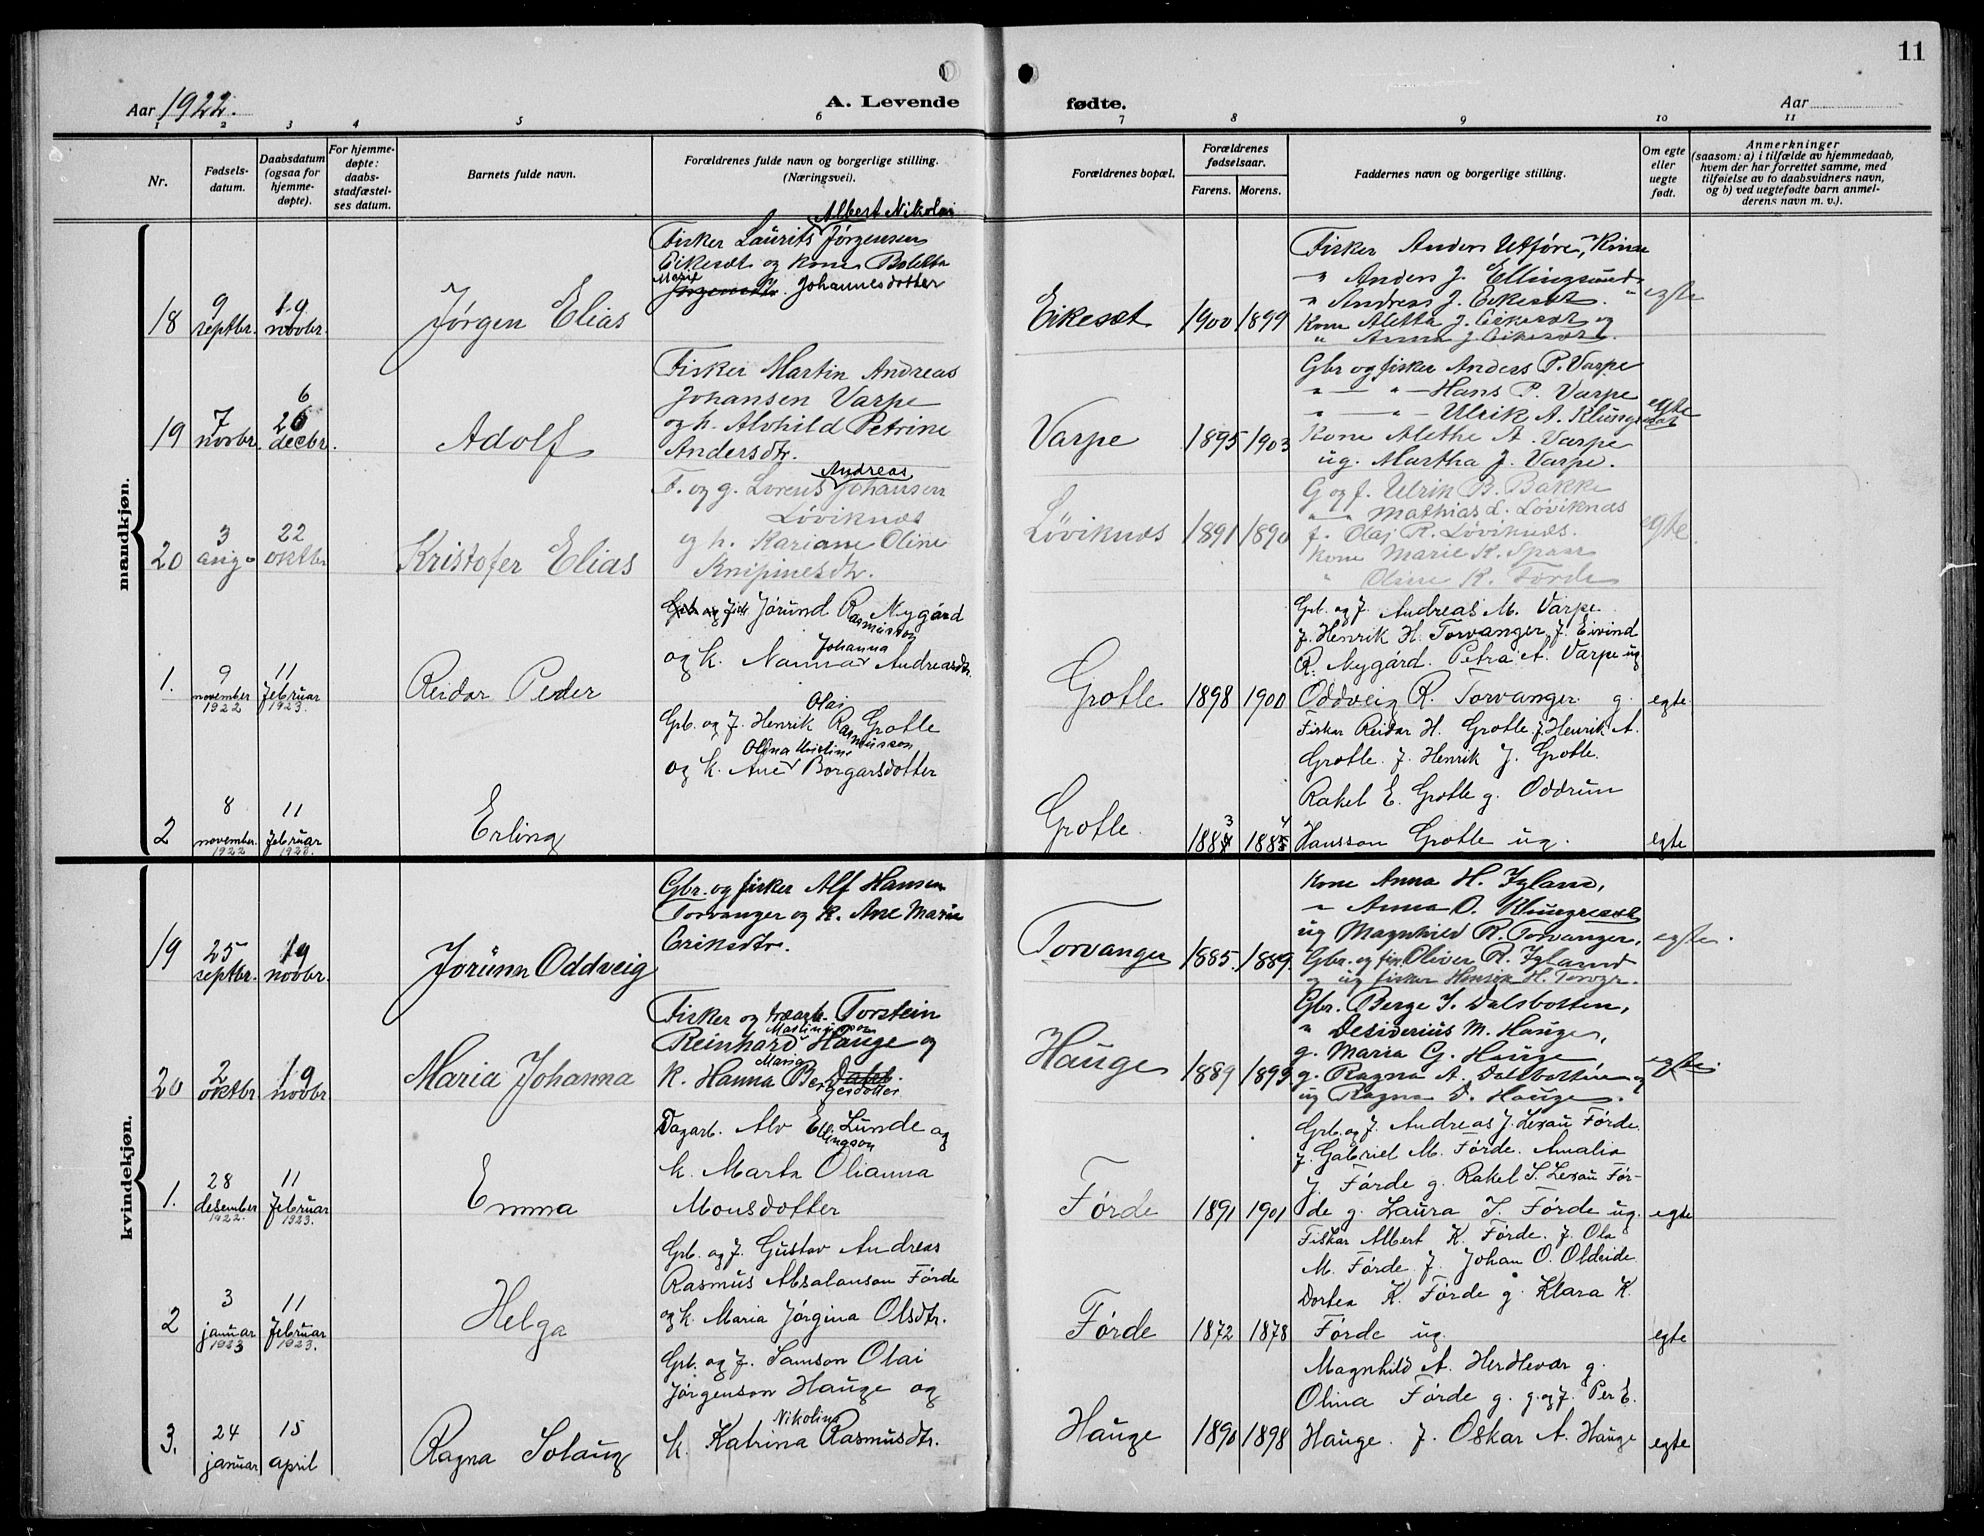 11
Aar 1922.
A. Levende fødte.
Aar
1 2 3 4 5 6 7 8 9 10 11
Nr.
Fødsels-
datum.
Daabsdatum
(ogsaa for
hjemme-
døpte).
For hjemme-
døpte:
daabs-
stadfæstel-
ses datum.
Barnets fulde navn.
Forældrenes fulde navn og borgerlige stilling.
(Næringsvei).
Forældrenes bopæl.
Forældrenes
fødselsaar.
Farens. Morens.
Faddernes navn og borgerlige stilling.
Om egte
eller
uegte
født.
Anmerkninger
(saasom: a) i tilfælde av hjemmedaab,
hvem der har forrettet samme, med
tilføielse av to daabsvidners navn,
og b) ved uegtefødte barn anmel-
derens navn m. v.).
mandkjøn.
18
9
septbr.
19
novbr.
Jørgen Elias
Albert Nikolai
Fisker Laurits Jørgensen
Eikeset og kone Boletta
Marie
Johannesdotter
Eikeset
1900 1899
Fisker Anders Utføre, Kinn
" Anders J. Ellingsund
" Andreas J. Eikeset. "
Kone Aletta J. Eikeset og
" Anna J. Eikeset.
egte
19
7
novbr.
6
26
decbr.
Adolf
Fisker Martin Andreas
Johansen Varpe
og h. Alvhild Petrine
Andersdtr.
Varpe
1895 1903
Gbr og fisker Anders P. Varpe
" — " — Hans P. Varpe
" — " — Ulrik A. Klungreset
Kone Alethe A. Varpe
ug. Martha J. Varpe.
egte
20
3
aug.
22
oktbr
Kristofer Elias
Andreas
F. og g. Lorens Johansen
Løviknes
og h. Kariane Oline
Knipinesdtr.
Løviknes
1891 1890
G og f. Ulrik B. Bakke
" " Mathias L. Løviknes
f. Olaj R. Løviknes.
Kone Marie K.
" Oline K. Førde
egte.
1.
9
november
1922
11
februar
1923.
Reidar Peder
Grb og fisk Jørund R Nygård
asmusson
Johanna
og k. Nanna Andreasdtr.
Grotle
1898 1900
Grb. og f. Andreas M. Varpe.
f. Henrik H. Torvanger, f. Eivind
R. Nygård. Petra A. Varpe ug
Oddveig R. Torvanger g.
egte.
2
8
november.
1922
11
februar
1923.
Erling
Olai
Grb. og f. Henrik Ra Grotle
smusson
Olina Kristine
og k. Ane Borgarsdotter
Grotle.
3 4
1887 1885
Fiskar Reidar H. Grotle f. Henrik A.
Grotle. f. Henrik J. Grotle.
Rakel E. Grotle g. Oddrun
Hansson Grotle ug.
egte
kvindekjøn.
19
25
septbr.
19
novbr.
Jorunn Oddveig
Gbr. og fisker Alf Hansen
Torvanger og k. Ane Marie
Eriksdtr.
Torvanger
1885. 1889.
Kone Anna H. Igland,
" Anna O. Klungreset
ug Magnhild R. Torvanger,
Gbr. og fis Oliver R. Igland
og ug fisker Henrik H. Torvgr.
egte.
20
2
oktbr
19
novbr
Maria Johanna
Fisker og træarb. Torstein
Martinusson
Reinhard Hauge og
Maria
k. Hanna Ber
gesdotter
Hauge
1889 1893
Gbr. Berge I. Dalsbotten,
" Desiderius M. Hauge,
g. Maria G. Hauge,
g. Ragna A. Dalsbotten og
ug Ragna D. Hauge.
egte.
1.
28
desember
1922.
11
februar
1923.
Emma
Dagarb. Alv E Lunde og
llingson
k. Marta Olianna
Monsdotter
Førde
1891 1901
Grb. og f. Andreas J. Lexau Førde.
f. Gabriel M. Førde. Amalia
J. Førde g. Rakel S. Lexau Før-
de g. Laura I. Førde ug.
egte
2
3
januar
1923
11
februar
1923.
Helga
Grb. og f. Gustav Andreas
Rasmus Absalonson Førde
og k. Maria Jørgina Olsdtr.
Førde
1872 1878
Fiskar Albert K. Førde. f. Ola
M. Førde. f. Johan O. Oldeide.
Dortea K. Førde g. Klara K.
Førde ug.
egte
3.
24
januar
15
april
Ragna Solaug
Grb. og f. Samson Olai
Jørgenson Hauge og
Nikolina
k. Katrina Rasmusdtr.
Hauge
1890 1898
Magnhild A. Herdlevær g.
Olina Førde g. g. og f. Per E.
Hauge. f. Oskar A. Hauge
egte